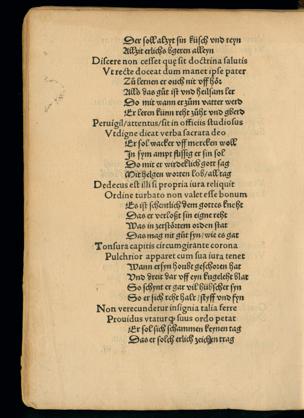 Der soll alzyt sin küsch vnd reyn
Allzit erlichs bgeren alleyn
Discere non cesset que sit doctrina salutis
Vt recte doceat dum manet ipse pater
Zů lernen er ouch nit vff hör
Alls das gůt ist vnd heilsam ler
Do mit wann er zům vatter werd
Er leren künn reht zůht vnd gberd
Peruigil/attentus/sit in officiis studiosus
Vt digne dicat verba sacrata deo
Er sol wacker vff mercken woll
In sym ampt flissig er sin sol
Do mit er wirdeklich gott sag
Mit helgen worten lob/all tag
Dedecus est illi si propria iura reliquit
Ordine turbato non valet esse bonum
Es ist schentlich dem gottes kneht
Das er verloßt sin eigne reht
Was in zerstörtem orden stat
Das mag nit gůt syn/wie es gat
Tonsura capitis circumgirante corona
Pulchrior apparet cum sua iura tenet
Wann er sym houbt geschoren hat
Vnd dreit dar vff eyn kugelhůt stat
So schynt er gar vil hübscher syn
So er sich reht halt/styff vnd fyn
Non verecundetur insignia talia ferre
Prouidus vtatur suus ordo petat
Er sol sich schammen keynen tag
Das er solch erlich zeichen trag